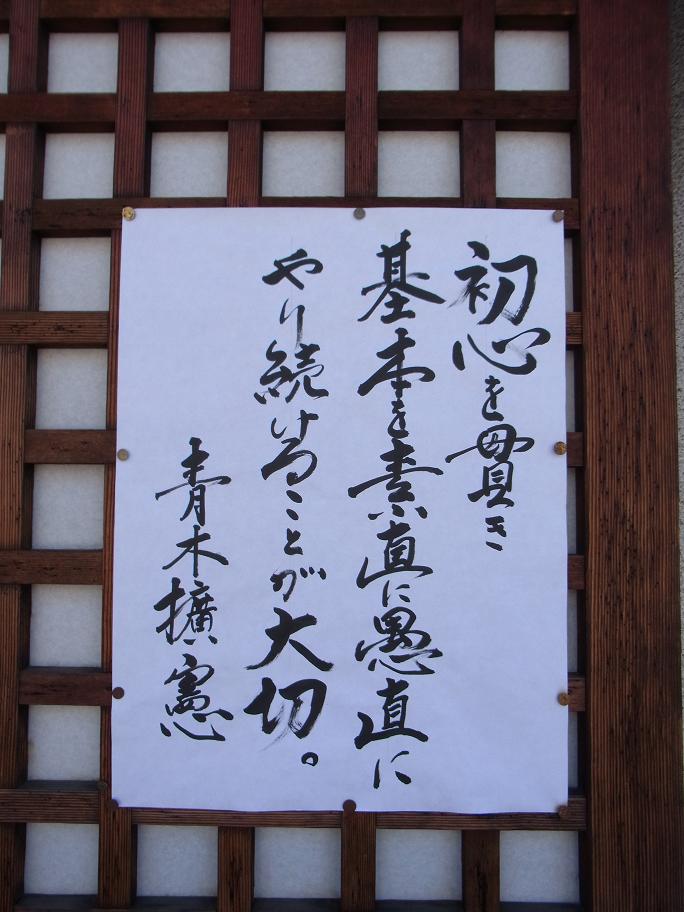 初心を貫き
基本を素直に愚直に
やり続けることが大切。
青木擴憲